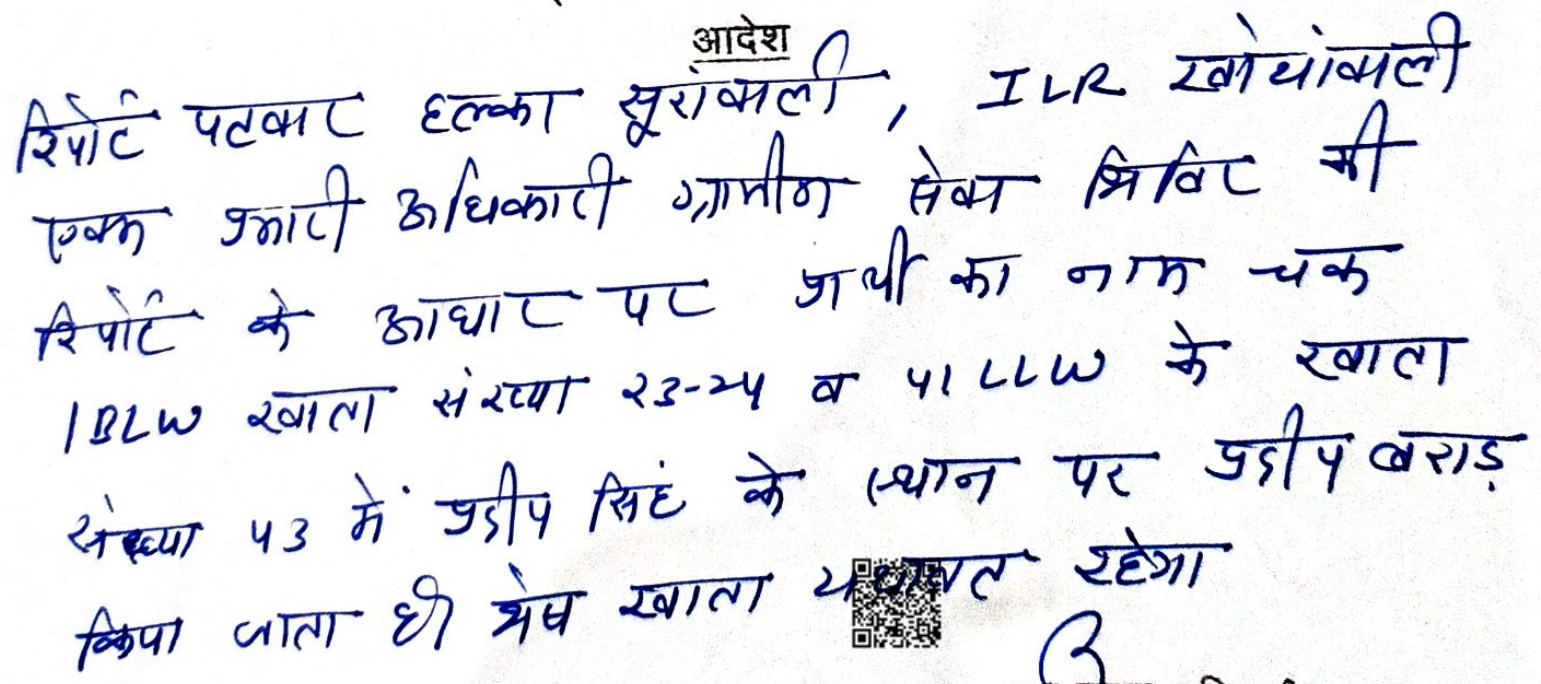 आदेश
रिपोर्ट पटवार हल्का सूरांवाली, ILR खोथांवाली
एवम प्रभारी अधिकारी ग्रामीण सेवा शिविर की
रिपोर्ट के आधार पर प्रार्थी का नाम चक
1BLW खाता संख्या 23-24 व 41 LLW के खाता
संख्या 43 में प्रदीप सिंह के स्थान पर प्रदीप बराड़
किया जाता है। शेष खाता यथावत रहेगा